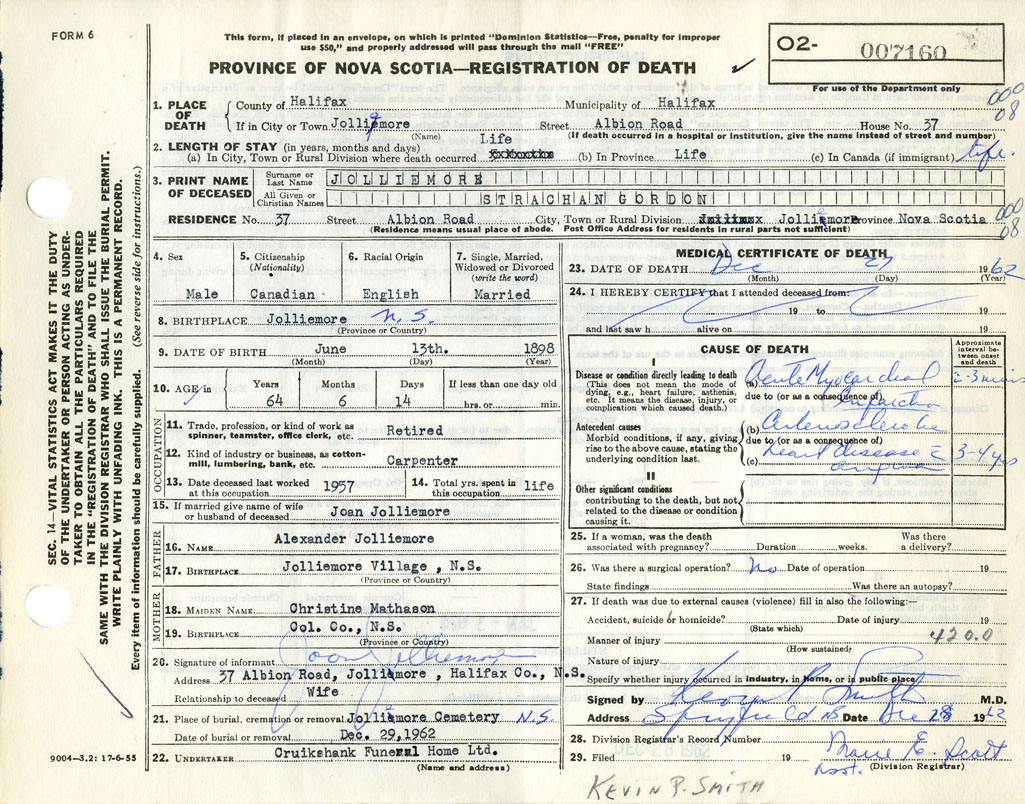 FORM 6
This form, if placed in an envelope, on which is printed "Dominion Statistics—Free, penalty for improper
use $50," and properly addressed will pass through the mail "FREE"
PROVINCE OF NOVA SCOTIA—REGISTRATION OF DEATH ✓
02- 007160
For use of the Department only
000
08
1. PLACE OF DEATH
County of Halifax Municipality of Halifax
If in City or Town Jolliemore Street Albion Road House No. 37
(Name) (If death occurred in a hospital or institution, give the name instead of street and number)
2. LENGTH OF STAY (in years, months and days) Life
(a) In City, Town or Rural Division where death occurred (b) In Province Life (c) In Canada (if immigrant) life.
3. PRINT NAME OF DECEASED
Surname or Last Name JOLLIEMORE
All Given or Christian Names STRACHAN GORDON
000
08
RESIDENCE No. 37 Street Albion Road City, Town or Rural Division Jolliemore Province Nova Scotia
(Residence means usual place of abode. Post Office Address for residents in rural parts not sufficient)
4. Sex
Male
5. Citizenship (Nationality)
Canadian
6. Racial Origin
English
7. Single, Married, Widowed or Divorced (write the word)
Married
8. BIRTHPLACE Jolliemore N.S.
(Province or Country)
9. DATE OF BIRTH June 13th. 1898
(Month) (Day) (Year)
10. AGE in
Years Months Days If less than one day old
64 6 14 hrs. or min.
OCCUPATION
11. Trade, profession, or kind of work as
spinner, teamster, office clerk, etc. Retired
12. Kind of industry or business, as cotton-
mill, lumbering, bank, etc. Carpenter
13. Date deceased last worked at this occupation 1957
14. Total yrs. spent in this occupation life
15. If married give name of wife
or husband of deceased Joan Jolliemore
FATHER
16. NAME Alexander Jolliemore
17. BIRTHPLACE Jolliemore Village , N.S.
(Province or Country)
MOTHER
18. MAIDEN NAME Christine Mathason
19. BIRTHPLACE Col. Co., N.S.
(Province or Country)
20. Signature of informant Joan Jolliemore
Address 37 Albion Road, Jolliemore , Halifax Co., N.S.
Relationship to deceased Wife
21. Place of burial, cremation or removal Jolliemore Cemetery N.S.
Date of burial or removal Dec. 29,1962
22. UNDERTAKER Cruikshank Funeral Home Ltd.
(Name and address)
9004—3.2: 17-6-55
MEDICAL CERTIFICATE OF DEATH
23. DATE OF DEATH Dec 27 1962
(Month) (Day) (Year)
24. I HEREBY CERTIFY that I attended deceased from:
19 to 19
and last saw h alive on 19
CAUSE OF DEATH
Approximate interval between onset and death
I
Disease or condition directly leading to death
(This does not mean the mode of
dying, e.g., heart failure, asthenia,
etc. It means the disease, injury, or
complication which caused death.)
(a) Acute Myocardial 2-3 mins
due to (or as a consequence of)
Infarction
Antecedent causes
Morbid conditions, if any, giving
rise to the above cause, stating the
underlying condition last.
(b) Arteriosclerotic
due to (or as a consequence of)
(c) heart disease c̄ 3-4 yrs
angina
II
Other significant conditions
contributing to the death, but not
related to the disease or condition
causing it.
25. If a woman, was the death
associated with pregnancy? Duration weeks. Was there a delivery?
26. Was there a surgical operation? No Date of operation 19
State findings Was there an autopsy?
27. If death was due to external causes (violence) fill in also the following:—
Accident, suicide or homicide? Date of injury 19
(State which)
Manner of injury 420.0
(How sustained)
Nature of injury
Specify whether injury occurred in industry, in home, or in public place
Signed by Kevin P. Smith M.D.
Address NS Date Dec 28 1962
28. Division Registrar's Record Number
DEC 28 1962
29. Filed 19 Marie E. Scott
Asst. (Division Registrar)
KEVIN P. SMITH
SEC. 14—VITAL STATISTICS ACT MAKES IT THE DUTY
OF THE UNDERTAKER OR PERSON ACTING AS UNDER-
TAKER TO OBTAIN ALL THE PARTICULARS REQUIRED
IN THE "REGISTRATION OF DEATH" AND TO FILE THE
SAME WITH THE DIVISION REGISTRAR WHO SHALL ISSUE THE BURIAL PERMIT.
WRITE PLAINLY WITH UNFADING INK. THIS IS A PERMANENT RECORD.
Every item of information should be carefully supplied. (See reverse side for instructions.)